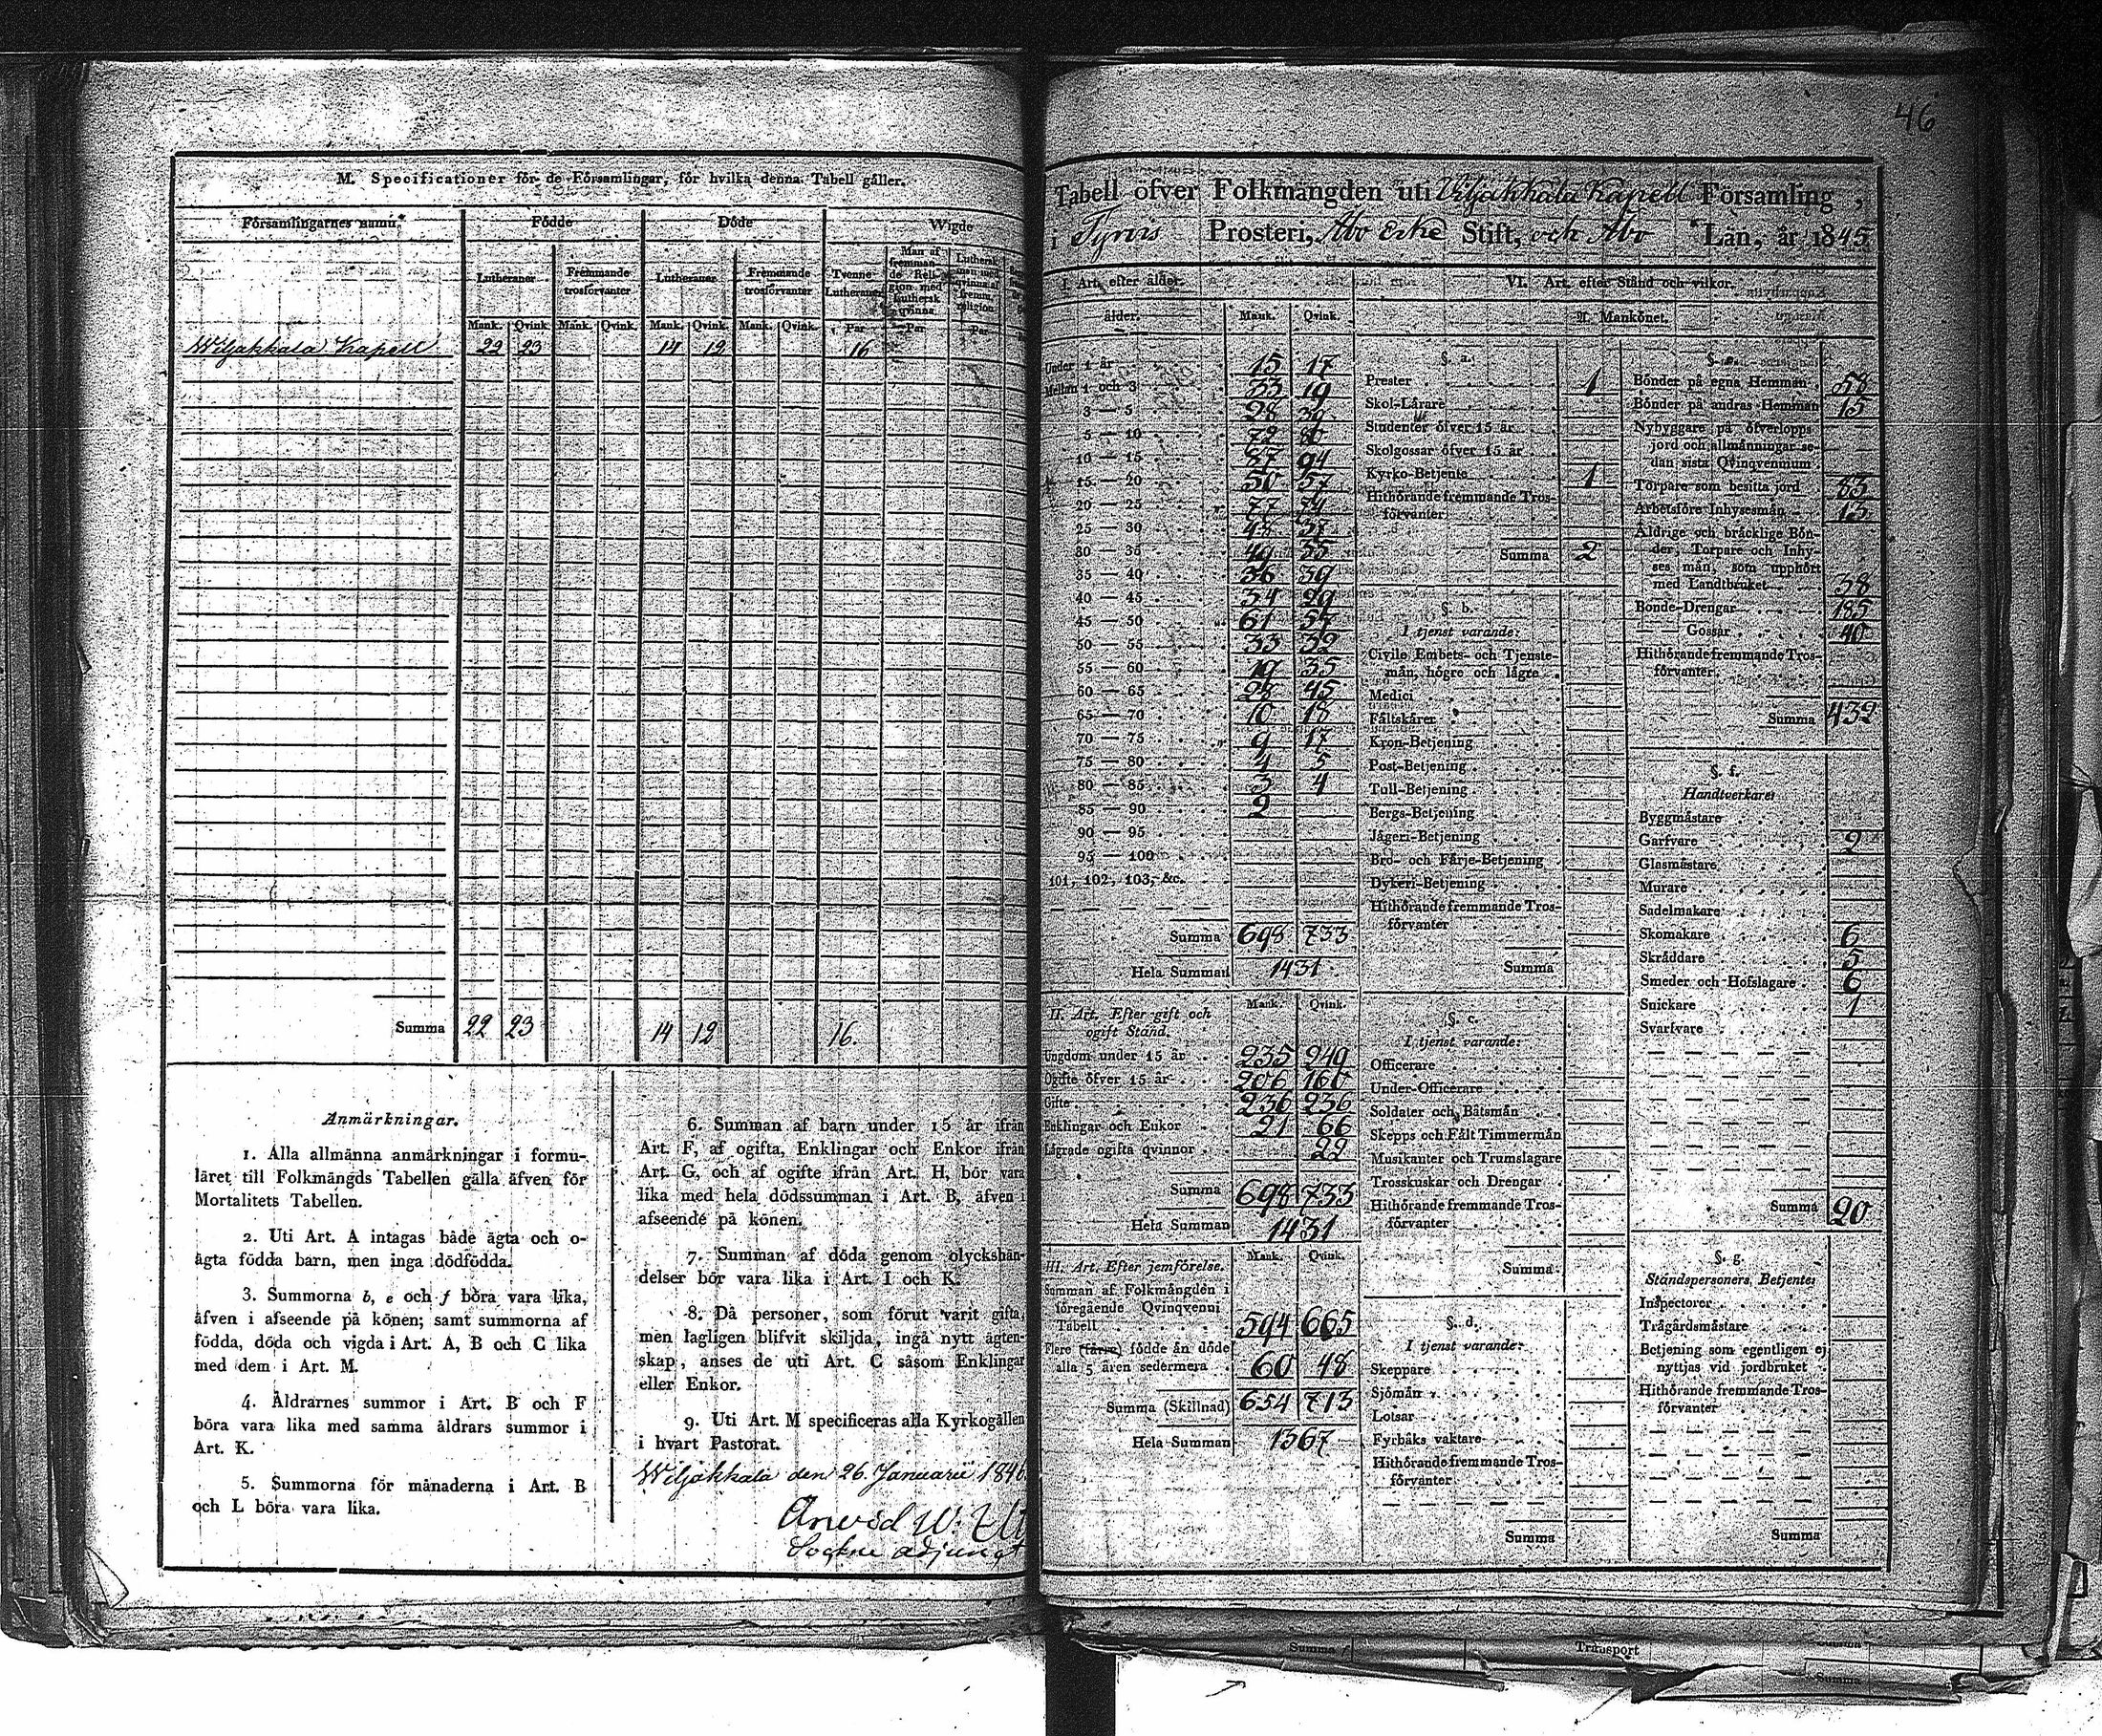 46
M. Specificationer för de Församlingar, för hvilka denna Tabell gäller.
Församlingarnes namn.
Födde
Döde
Wigde
Lutheraner
Främmande trosförvanter
Lutheraner
Främmande trosförvanter
Tvenne Lutheraner
Man af främmande Religion med Luthersk qvinna
Luthersk man med qvinna af främm. religion
Mank. Qvink. Mank. Qvink. Mank. Qvink. Mank. Qvink. Par Par Par
Wiljakkala Kapell 22 23 14 12 16
Summa 22 23 14 12 16.
Anmärkningar.
1. Alla allmänna anmärkningar i formu-
läret till Folkmängds Tabellen gälla äfven för
Mortalitets Tabellen.
2. Uti Art. A intagas både ägta och o-
ägta födda barn, men inga dödfödda.
3. Summorna b, e och f böra vara lika,
äfven i afseende på könen; samt summorna af
födda, döda och vigda i Art. A, B och C lika
med dem i Art. M.
4. Åldrarnes summor i Art. B och F
böra vara lika med samma åldrars summor i
Art. K.
5. Summorna för månaderna i Art. B
och L böra vara lika.
6. Summan af barn under 15 år ifrån
Art. F, af ogifta, Enklingar och Enkor ifrån
Art. G, och af ogifte ifrån Art. H, bör vara
lika med hela dödssumman i Art. B, äfven i
afseende på könen.
7. Summan af döda genom olyckshän-
delser bör vara lika i Art. I och K.
8. Då personer, som förut varit gifta,
men lagligen blifvit skiljda, ingå nytt ägten-
skap, anses de uti Art. C såsom Enklingar
eller Enkor.
9. Uti Art. M specificeras alla Kyrkogällen
i hvart Pastorat.
Wiljakkala den 26. Januarii 1846.
Arvid W.
Sockne adjunct
Tabell öfver Folkmängden uti Viljakkala Kapell Församling,
i Tyrvis Prosteri, Åbo Erke Stift, och Åbo Län, år 1845
I. Art. efter ålder.
ålder. Mank. Qvink.
Under 1 år 15 17
Mellan 1 och 3 33 19
3 — 5 28 39
5 — 10 72 80
10 — 15 87 94
15 — 20 50 57
20 — 25 77 74
25 — 30 48 37
30 — 35 49 35
35 — 40 36 39
40 — 45 34 29
45 — 50 61 57
50 — 55 33 32
55 — 60 19 35
60 — 65 28 45
65 — 70 10 18
70 — 75 9 17
75 — 80 4 5
80 — 85 3 4
85 — 90 2
90 — 95
95 — 100
101, 102, 103, &c.
Summa 698 733
Hela Summan 1431.
Mank. Qvink.
II. Art. Efter gift och
ogift Stånd.
Ungdom under 15 år 235 249
Ogifte öfver 15 år 206 160
Gifte 236 236
Enklingar och Enkor 21 66
Lägrade ogifta qvinnor 22
Summa 698 733
Hela Summan 1431
Mank. Qvink.
III. Art. Efter jemförelse.
Summan af Folkmängden i
föregående Qvinqvenni
Tabell 594 665
Flere (färre) födde än döde
alla 5 åren sedermera 60 48
Summa (Skillnad) 654 713
Hela Summan 1367
VI. Art. efter Stånd och vilkor.
A. Mankönet.
§. a.
Prester 1
Skol-Lärare
Studenter öfver 15 år
Skolgossar öfver 15 år
Kyrko-Betjente 1
Hithörande fremmande Tros-
förvanter
Summa 2
§. b.
I tjenst varande:
Civile Embets- och Tjenste-
män, högre och lägre
Medici
Fältskärer
Kron-Betjening
Post-Betjening
Tull-Betjening
Bergs-Betjening
Jägeri-Betjening
Bro- och Färje-Betjening
Dykeri-Betjening
Hithörande fremmande Tros-
förvanter
Summa
§. c.
I tjenst varande:
Officerare
Under-Officerare
Soldater och Båtsmän
Skepps och Fält Timmermän
Musikanter och Trumslagare
Trosskuskar och Drengar
Hithörande fremmande Tros-
förvanter
Summa
§. d.
I tjenst varande:
Skeppare
Sjömän
Lotsar
Fyrbåks vaktare
Hithörande fremmande Tros-
förvanter
Summa
§. e.
Bönder på egna Hemman 58
Bönder på andras Hemman 15
Nybyggare på öfverlopps
jord och allmänningar se-
dan sista Qvinqvennium
Torpare som besitta jord 83
Arbetsföre Inhysesmän 13
Åldrige och bräcklige Bön-
der, Torpare och Inhy-
ses män, som upphört
med Landtbruket 38
Bonde-Drengar 185
— Gossar 40
Hithörande fremmande Tros-
förvanter
Summa 432
§. f.
Handtverkare:
Byggmästare
Garfvare 2
Glasmästare
Murare
Sadelmakare
Skomakare 6
Skräddare 5
Smeder och Hofslagare 6
Snickare 1
Svarfvare
Summa 20
§. g.
Ståndspersoners Betjente:
Inspectorer
Trägårdsmästare
Betjening som egentligen ej
nyttjas vid jordbruket
Hithörande fremmande Tros-
förvanter
Summa
Summa
Transport
Summa